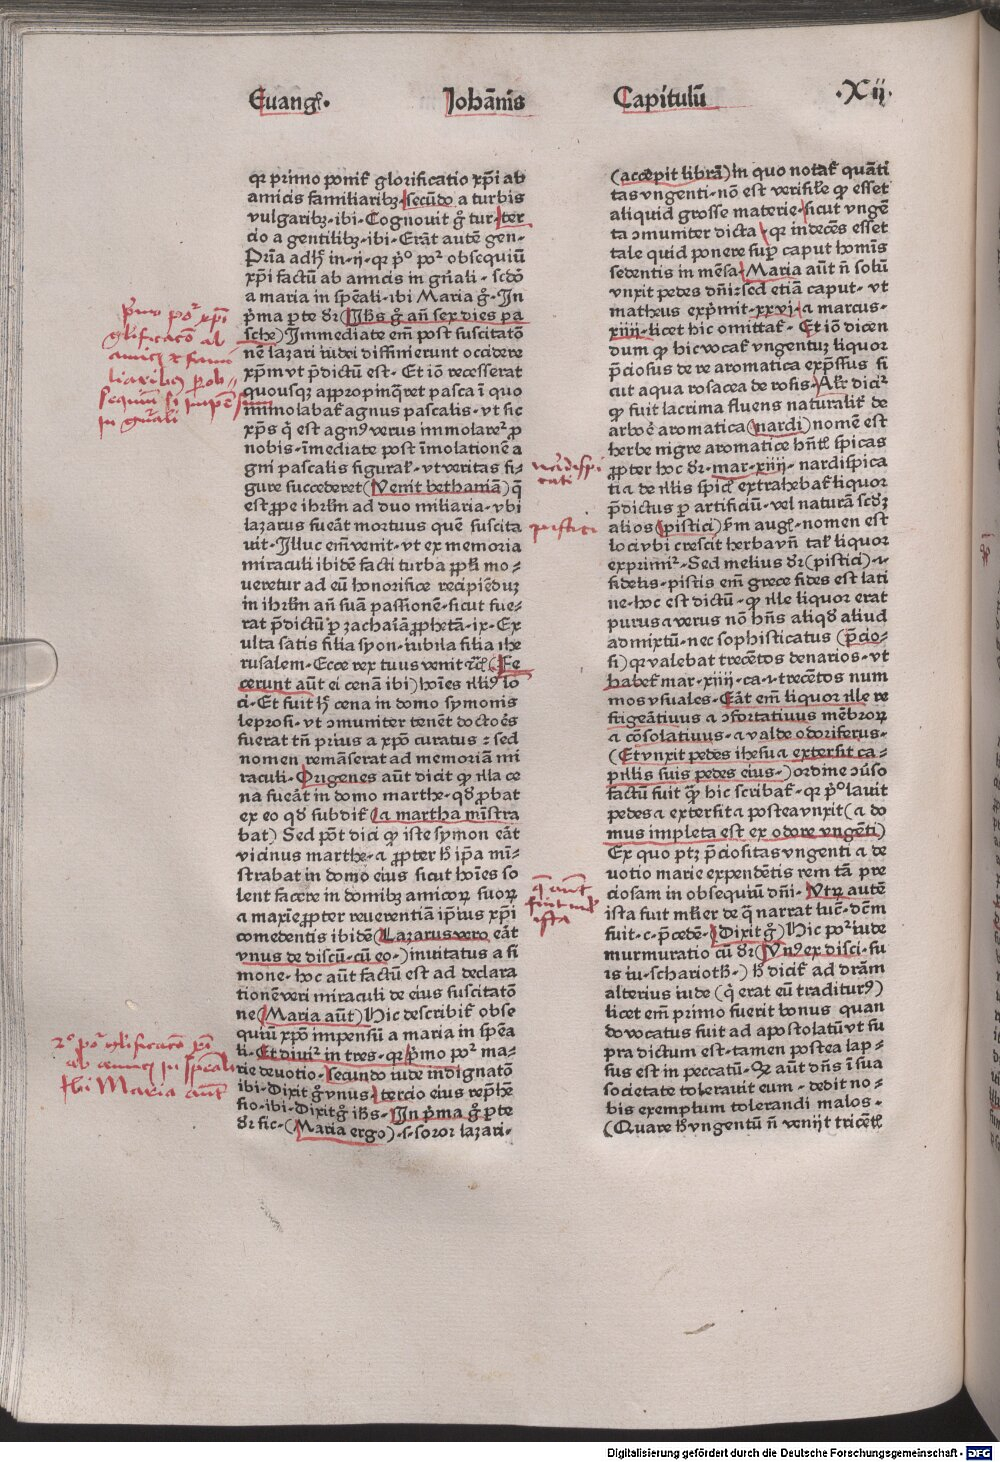 Euangl̄· Johānis Capitulū ·Xij
qꝛ primo poniť glorificatio xp̄i ab
amicis familiaribꝫ· secūdo a turbis
vulgaribꝫ·ibi·Cognouit g̊ tur·ter
cio a gentilibꝫ·ibi·Erāt autē gen·
Pr̄ia adhꝰ in·ij·qꝛ p̊º poꝛ obsequiū
xp̄i factū ab amicis in gn̄ali·scdō
a maria in sp̄eali·ibi Maria g̊·In
p̄ma p̲te dꝛ (Jhūs g̊ añ sex dies pa
sche) Immediate em̄ post suscitatō
nē lazari iudei diffinierunt occidere
xp̄m vt p̄dictū est·Et iō recesserat
quousqꝫ appropinq̄ret pasca ī quo
immolabať agnus pascalis·vt sic
xp̄s q̇ est agnꝰ verus immolareꝛ ꝓ
nobis·īmediate post īmolationē a
gni pascalis figuraľ·vt veritas fi⸗
gure succederet (Venit bethaniā) q̄
est ꝓpe ihrlm̄ ad duo miliaria·vbi
lazarus fuēat mortuus quē suscita
uit·Illuc em̄ venit·vt ex memoria
miraculi ibidē facti turba ꝓpl̄i mo⸗
ueretur ad eū honorifice recipiēduꝫ
in ihrlm̄ añ suā passionē·sicut fue⸗
rat p̄dictū p̲ zachaīā ꝓphetā·ix·Ex
ulta satis filia syon·iubila filia ihe
rusalem·Ecce rex tuus venit ꝛc̄ (Fe
cerunt aūt ei cenā ibi) hoīes illiꝰ lo
ci·Et fuit hꝰ cena in domo symonis
leprosi·vt ɔmuniter tenēt doctoēs
fuerat tn̄ prius a xpō curatus : sed
nomen remāserat ad memoriā mi
raculi·Origenes aūt dicit qꝙ illa ce
na fuēat in domo marthe·qd̓ ꝓbat
ex eo qd̓ subdiť (a martha mīstra
bat) Sed pōt dici qꝙ iste symon eāt
vicinus marthe·a ꝓpter hꝰ ip̄a mī⸗
strabat in domo eius sicut hoīes so
lent facere in domibꝫ amicoꝝ suoꝝ
a maxīe ꝓpter reuerentiā ip̄ius xp̄i
comedentis ibidē (Lazarus vero eāt
vnus de discū·cū eo·) inuitatus a si
mone·hoc aūt factū est ad declara
tionē veri miraculi de eius suscitatō
ne (Maria aūt) Hic describiť obse
quiū xpō impensū a maria in sp̄ea
li·Et diuiꝛ in tres·qꝛ p̄mo poꝛ ma⸗
rie deuotio·secundo iude indignatō
ibi·Dixit g̊ vnus·tercio eius rep̄hē
sio·ibi·Dixit g̊ ihs̄·In p̄ma g̊ p̲te
dꝛ sic·(Maria ergo) ·s·soror lazari·
(accepit librā) In quo notať quāti
tas vngenti·nō est verisil̄e qꝙ esset
aliquid grosse materie·sicut vngē
ta ɔmuniter dicta·qꝛ indecēs esset
tale quid ponere sup̲ caput homīs
sedentis in mēsa·Maria aūt n̄ solū
vnxit pedes dn̄i: sed etiā caput·vt
matheus exp̄mit·xxvj·a marcus·
xiiij·licet hic omittať·Et iō dicen
dum qꝙ hic vocať vngentuꝫ liquor
p̄ciosus de re aromatica exp̄ssus si
cut aqua rosacea de rosis·Alr̄ diciꝛ
qꝙ fuit lacrima fluens naturaliť de
arboē aromatica (nardi) nomē est
herbe nigre aromatice hn̄tis spicas
ꝓpter hoc dꝛ·mar·xiiij·nardi spica
ti a de illis spicis extrahebať liquor
p̄dictus p̲ artificiū·vel naturā scd̓ꝫ
alios (pistici) s̄m augꝰ·nomen est
loci vbi crescit herba vn̄ talis liquor
exprimiꝛ·Sed melius dꝛ (pistici)·i·
fidelis·pistis em̄ grece fides est lati
ne·hoc est dictū·qꝙ ille liquor erat
purus a verus nō hn̄s aliqd̓ aliud
admixtū·nec sophisticatus (p̄cio⸗
si) qꝛ valebat trecētos denarios·vt
habeť mar·xiiij·ca·i·trecētos num
mos vsuales·Eāt em̄ liquor ille re
frigeātiuus a ɔfortatiuus mēbroꝝ
a cōsolatiuus·a valde odoriferus·
(Et vnxit pedes ihesu a extersit ca⸗
pillis suis pedes eius·) ordine ɔúso
factū fuit qꝙ hic scribať·qꝛ p̊º lauit
pedes a extersit a postea vnxit (a do
mus impleta est ex odore vngēti)
Ex quo ptꝫ p̄ciositas vngenti a de
uotio marie expendētis rem tā pre
ciosam in obsequiū dn̄i·Vtꝝ autē
ista fuit mľier de q̄ narrat luc̄·dc̄m
fuit·c·p̄cedē·(Dixit g̊) Hic poꝛ iude
murmuratio cū dꝛ (Vnꝰ ex disci·su
is iu·scharioth·) hꝰ diciť ad dr̄am
alterius iude (q̇ erat eū traditurꝰ)
licet em̄ primo fuerit bonus quan
do vocatus fuit ad apostolatū vt su
pra dictum est·tamen postea lap⸗
sus est in peccatū·Qꝫ aūt dn̄s ī sua
societate tolerauit eum·dedit no⸗
bis exemplum tolerandi malos·
(Quare hꝰ vngentū n̄ venijt tricētꝭ
nardi spi
cati
pistici
2º poꝛ glificacō xp̄i
ab amicꝭ in sp̄eali
ibi Maria aūt
Digitalisierung gefördert durch die Deutsche Forschungsgemeinschaft - DFG